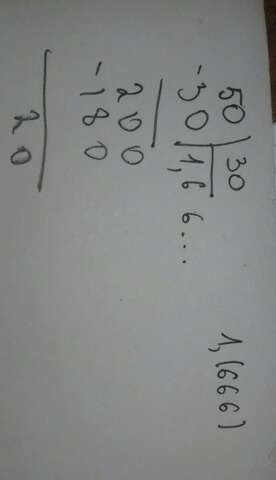 50 | 30
-30 | 1,66....
200
-180
20
1,(666)